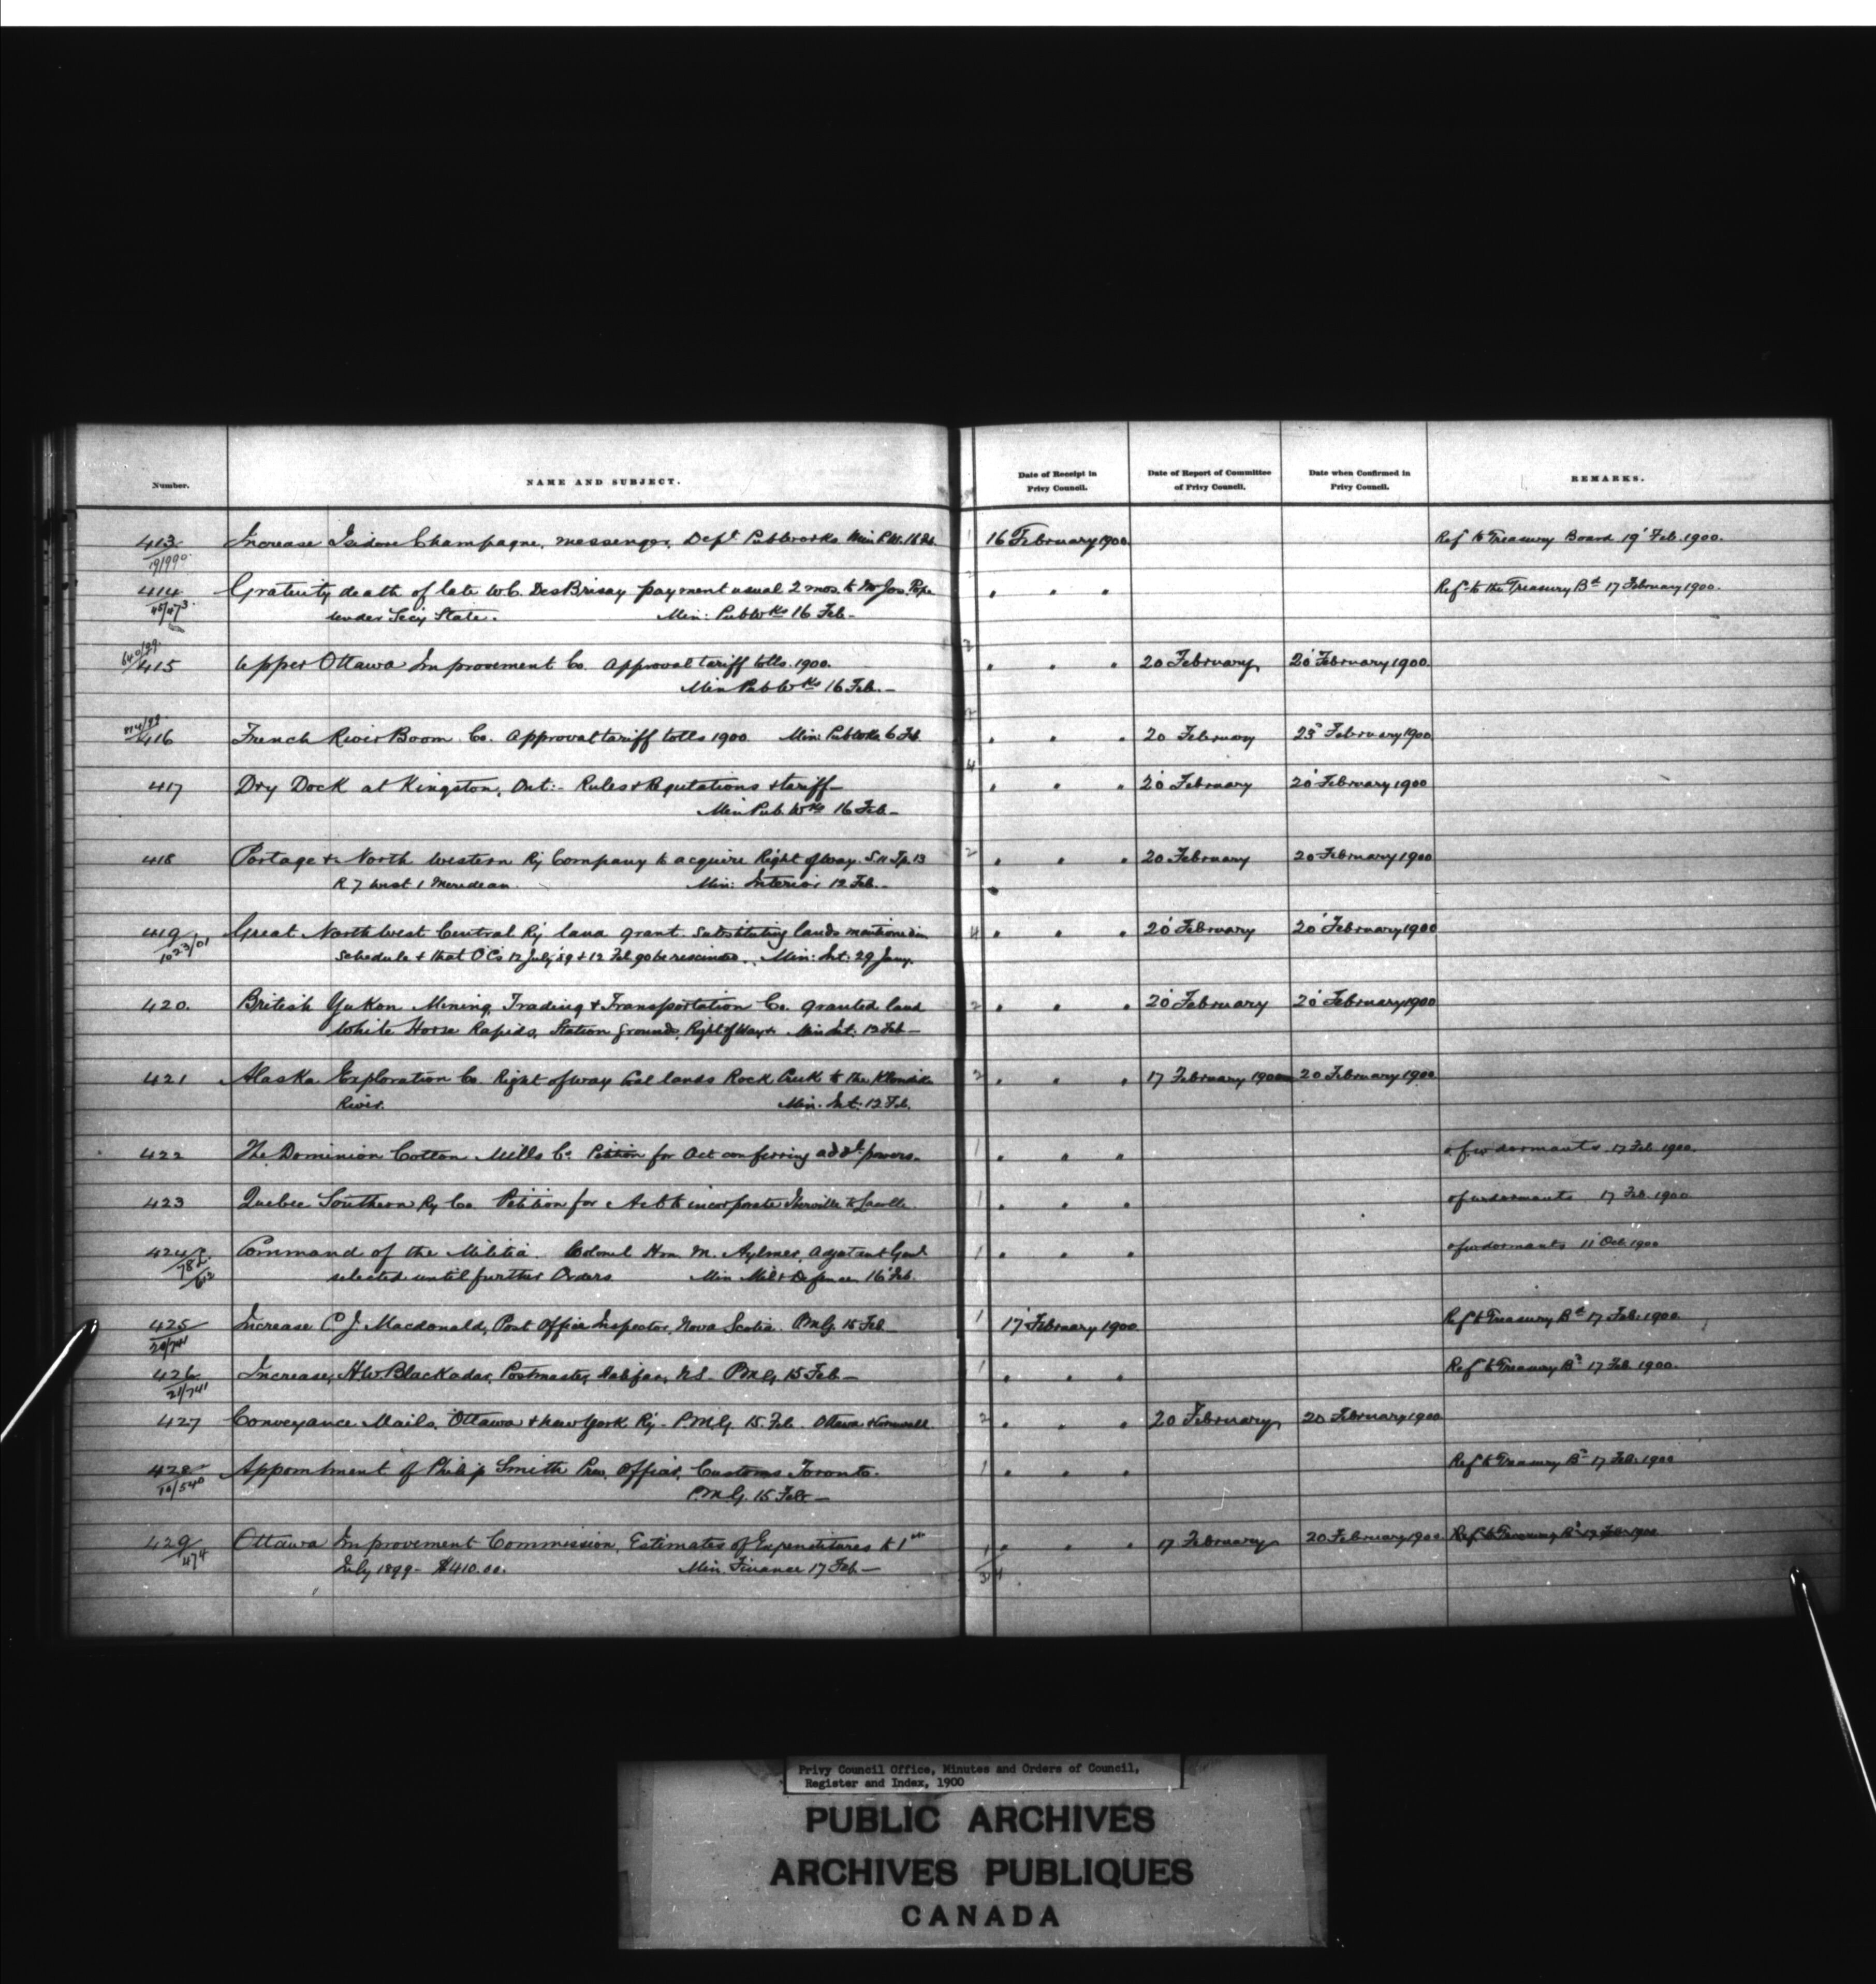 Number.
NAME AND SUBJECT.
Date of Receipt in Privy Council.
Date of Report of Committee of Privy Council.
Date when Confirmed in Privy Council.
REMARKS.
413 Increase Isidore Champagne, messenger, Dept Pub Works Min P.W. 16 Feb. 16 February 1900. Ref to Treasury Board 19 Feb. 1900.
19/990
414 Gratuity death of late W.C. DesBrisay payment usual 2 mos. to Mr Jos. Pope " " " Ref to the Treasury Bd 17 February 1900.
Under Secy State. Min: Pub Wks 16 Feb -
640/99
415 Upper Ottawa Improvement Co. Approval tariff tolls. 1900. " " " 20 February 20 February 1900
Min Pub Wks 16 Feb. -
416 French River Boom Co. Approval tariff tolls 1900. Min: Pub Wks 6 Feb " " " 20 February 23 February 1900
417 Dry Dock at Kingston, Ont:- Rules & Regulations & tariff - " " " 20 February 20 February 1900
Min Pub. Wks 16 Feb -
418 Portage & North Western Ry Company to acquire Right of way. S 11 Tp. 13 " " " 20 February 20 February 1900
R 7 West 1 Meridean. Min: Interior 12 Feb. -
419 Great North West Central Ry land grant. Substituting lands mentioned in " " " 20 February 20 February 1900
1023/01
Schedule & that OCs 12 July 89 & 12 Feb 90 be rescinded. Min: Int: 29 Jany.
420. British Yukon Mining, Trading & Transportation Co. granted land " " " 20 February 20 February 1900
White Horse Rapids, Station Grounds, Right of Way &. Min Int: 12 Feb -
421 Alaska Exploration Co. Right of way lands Rock Creek to the Klondike " " " 17 February 1900 20 February 1900
River. Min. Int. 12 Feb.
422 The Dominion Cotton Mills Co Petition for Act conferring addl powers. " " " 17 Feb. 1900.
423 Quebec Southern Ry Co. Petition for Act to incorporate Iberville to " " " 17 Feb. 1900
424 Command of the Militia. Colonel Hon. M. Aylmer, Adjutant Genl " " " 11 Oct. 1900
selected until further Orders Min Mil & Defence 16 Feb.
425 Increase C J. Macdonald, Post Office Inspector, Nova Scotia. P.M.G. 15 Feb 17 February 1900 Ref to Treasury Bd 17 Feb. 1900
20/741
426 Increase, H.W. Blackadar, Postmaster, Halifax, N.S. P.M.G. 15 Feb - " " " Ref to Treasury Bd 17 Feb. 1900.
21/741
427 Conveyance Mails, Ottawa & New York Ry - P.M.G. 15 Feb. Ottawa & Cornwall. " " " 20 February 20 February 1900
428 Appointment of Philip Smith Prev. Officer, Customs Toronto. " " " Ref to Treasury Bd 17 Feb. 1900
10/540
P.M.G. 15 Feb -
429 Ottawa Improvement Commission, Estimates of Expenditures to 1st " " " 17 February 20 February 1900 Ref to Treasury Bd 17 Feb 1900
474
July 1899 - $410.00. Min. Finance 17 Feb -
Privy Council Office, Minutes and Orders of Council,
Register and Index, 1900
PUBLIC ARCHIVES
ARCHIVES PUBLIQUES
CANADA